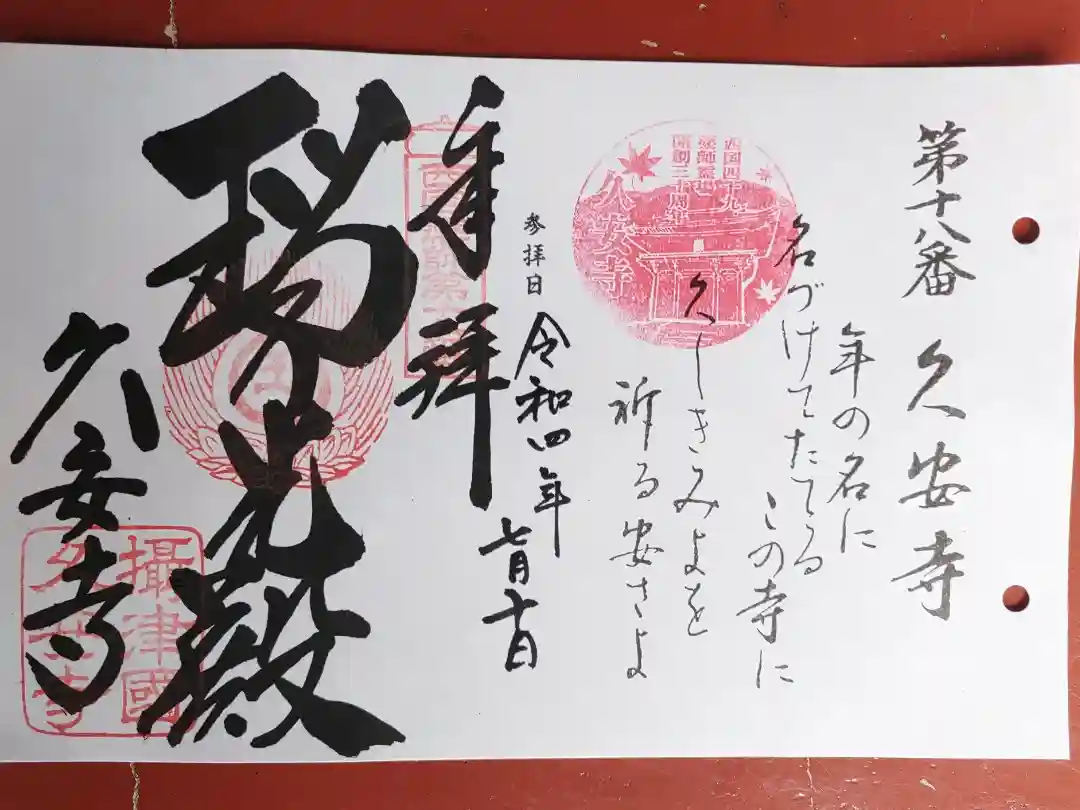 第十八番 久安寺
年の名に
名づけてたてる
この寺に
久しきみよを
祈る安さよ
西国四十九
薬師霊場
開創三十周年
久安寺
参拝日 令和四年
七月十日
奉拝
瑠璃光殿
久安寺
攝津國
久安寺